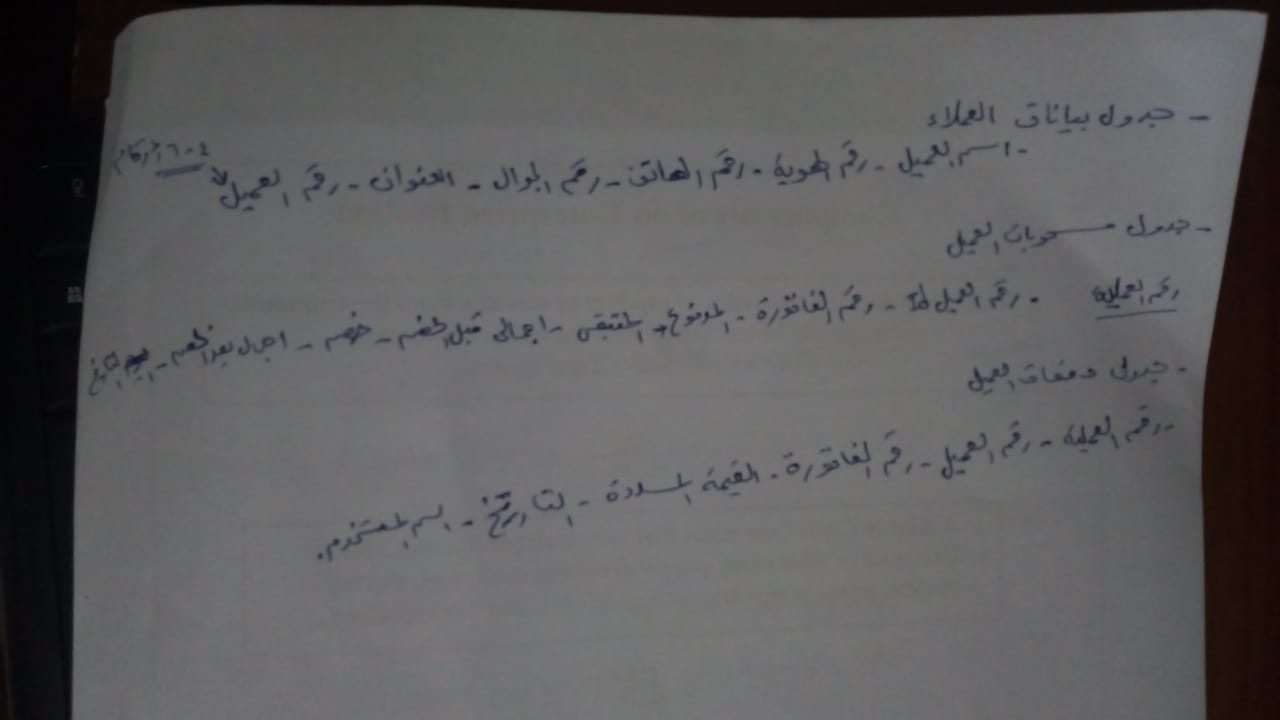 - جدول بيانات العملاء
- اسم العميل - رقم الهوية - رقم الهاتف - رقم الجوال - العنوان - رقم العميل ٤-٦ أرقام
- جدول مسحوبات العميل
رقم العملية - رقم العميل Id - رقم الفاتورة - المدفوع - المتبقي - اجمالى قبل الخصم - خصم - اجمالى بعد الخصم - التاريخ
- جدول دفعات العميل
- رقم العملية - رقم العميل - رقم الفاتورة - القيمة المسددة - التاريخ - اسم المستخدم.